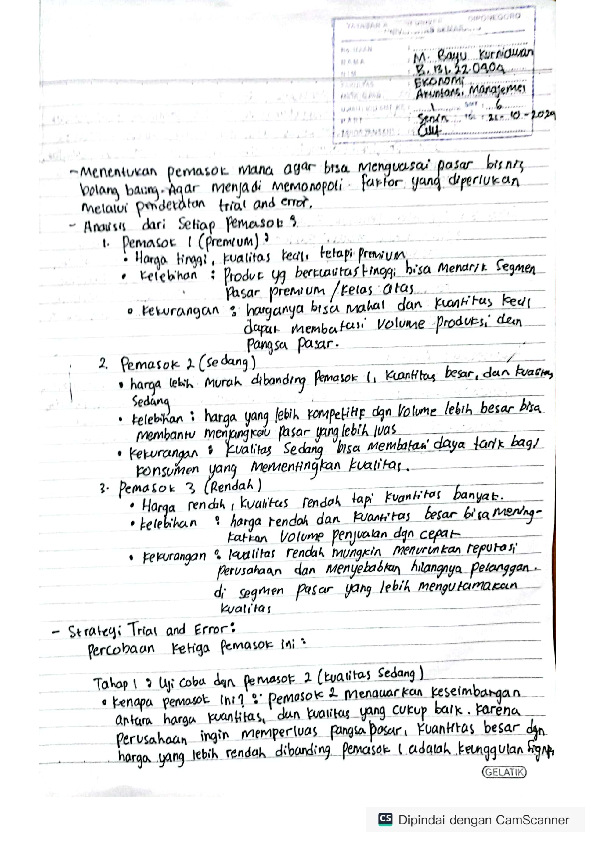 DIPONEGORO
NAMA
M. Bayu Kurniawan
B.131.22.0404
EKONOMI
Akuntansi Manajemen
1
6
Senin
21-10-2024
- Menentukan pemasok mana agar bisa menguasai pasar bisnis
bolang baling. Agar menjadi memonopoli. faktor yang diperlukan
melalui pendekatan trial and error.
- Analisis dari Setiap Pemasok :
1. Pemasok 1 (Premium) :
• Harga tinggi, kualitas kecil, tetapi premium
• Kelebihan : Produk yg berkualitas tinggi bisa Menarik Segmen
Pasar premium / kelas atas
• Kekurangan : harganya bisa mahal dan kuantitas kecil
dapat membatasi volume produksi dan
Pangsa pasar.
2. Pemasok 2 (Sedang)
• harga lebih murah dibanding Pemasok 1, kuantitas besar, dan kualitas
Sedang
• kelebihan : harga yang lebih kompetitif dgn Volume lebih besar bisa
membantu menjangkau pasar yang lebih luas
• Kekurangan : kualitas Sedang bisa membatasi daya tarik bagi
konsumen yang mementingkan kualitas.
3. Pemasok 3 (Rendah)
• Harga rendah, kualitas rendah tapi kuantitas banyak.
• kelebihan : harga rendah dan kuantitas besar bisa mening-
katkan volume penjualan dgn cepat
• Kekurangan : kualitas rendah mungkin menurunkan reputasi
perusahaan dan Menyebabkan hilangnya pelanggan.
di segmen pasar yang lebih mengutamakan
kualitas
- Strategi Trial and Error :
Percobaan Ketiga Pemasok ini :
Tahap 1 : Uji Coba dgn pemasok 2 (kualitas Sedang)
• Kenapa pemasok ini? : Pemasok 2 menawarkan keseimbangan
antara harga kuantitas, dan kualitas yang cukup baik. Karena
perusahaan ingin memperluas pangsa pasar, kuantitas besar dgn
harga yang lebih rendah dibanding pemasok 1 adalah keunggulan
GELATIK
CS Dipindai dengan CamScanner